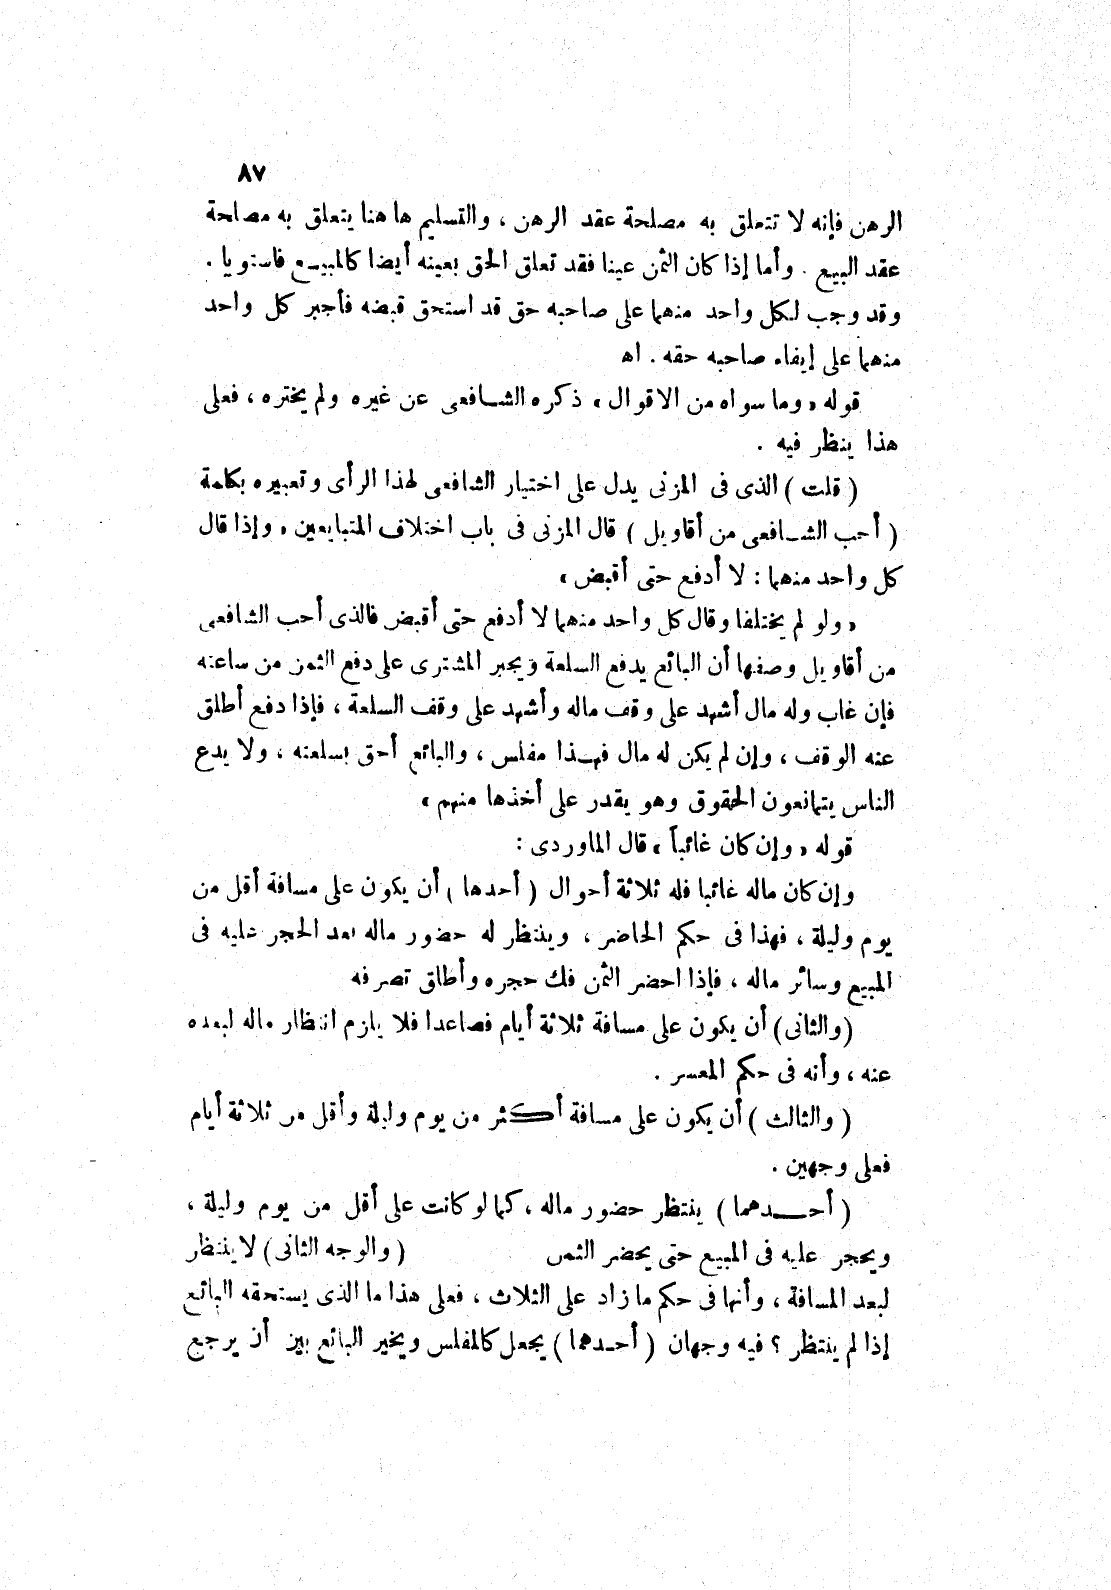 ٨٧
الرهن فإنه لا تتعلق به مصلحة عقد الرهن ، والتسليم ها هنا يتعلق به مصلحة
عقد البيع . وأما إذا كان الثمن عينا فقد تعلق الحق بعينه أيضا كالمبيع فاستويا .
وقد وجب لكل واحد منهما على صاحبه حق قد استحق قبضه فأجبر كل واحد
منهما على إيفاء صاحبه حقه . اه
قوله « وما سواه من الاقوال » ذكره الشافعى عن غيره ولم يختره ، فعلى
هذا ينظر فيه .
( قلت ) الذى فى المزنى يدل على اختيار الشافعى لهذا الرأى وتعبيره بكلمة
( أحب الشافعى من أقاويل ) قال المزنى فى باب اختلاف المتبايعين « وإذا قال
كل واحد منهما : لا أدفع حتى أقبض »
« ولو لم يختلفا وقال كل واحد منهما لا أدفع حتى أقبض فالذى أحب الشافعى
من أقاويل وصفها أن البائع يدفع السلعة ويجبر المشترى على دفع الثمن من ساعته
فإن غاب وله مال أشهد على وقف ماله وأشهد على وقف السلعة ، فإذا دفع أطلق
عنه الوقف ، وإن لم يكن له مال فهذا مفلس ، والبائع أحق بسلعته ، ولا يدع
الناس يتمانعون الحقوق وهو يقدر على أخذها منهم »
قوله « وإن كان غائباً » قال الماوردى :
وإن كان ماله غائبا فله ثلاثة أحوال ( أحدها ) أن يكون على مسافة أقل من
يوم وليلة ، فهذا فى حكم الحاضر ، وينتظر له حضور ماله بعد الحجر عليه فى
المبيع وسائر ماله ، فإذا احضر الثمن فك حجره وأطلق تصرفه
(والثانى) أن يكون على مسافة ثلاثة أيام فصاعدا فلا يلزم انتظار ماله لبعده
عنه ، وأنه فى حكم المعسر .
( والثالث ) أن يكون على مسافة أكثر من يوم وليلة وأقل من ثلاثة أيام
فعلى وجهين .
( أحدهما ) ينتظر حضور ماله ، كما لو كانت على أقل من يوم وليلة ،
ويحجر عليه فى المبيع حتى يحضر الثمن ( والوجه الثانى ) لا ينتظر
لبعد المسافة ، وأنها فى حكم ما زاد على الثلاث ، فعلى هذا ما الذى يستحقه البائع
إذا لم ينتظر ؟ فيه وجهان ( أحدهما ) يجعل كالمفلس ويخير البائع بين أن يرجع